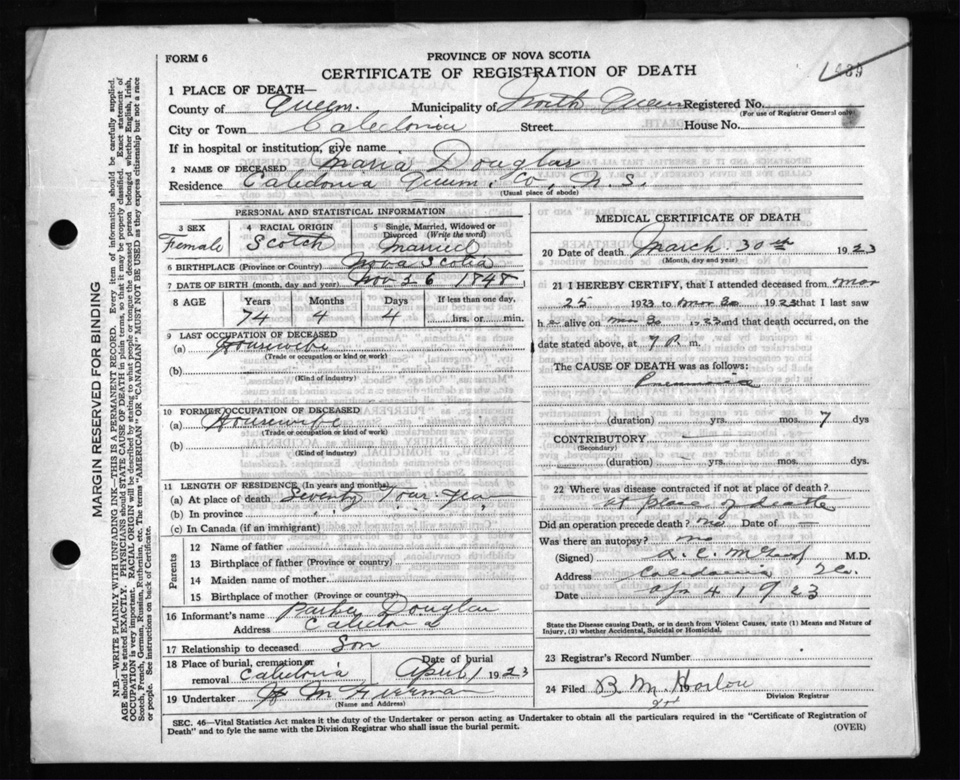 FORM 6
PROVINCE OF NOVA SCOTIA
CERTIFICATE OF REGISTRATION OF DEATH
1 PLACE OF DEATH—
County of Queens. Municipality of North Queens Registered No.
(For use of Registrar General only)
City or Town Caledonia Street House No.
If in hospital or institution, give name
2 NAME OF DECEASED Maria Douglas
Residence Caledonia Queens. Co, N.S.
(Usual place of abode)
PERSONAL AND STATISTICAL INFORMATION
3 SEX Female
4 RACIAL ORIGIN Scotch
5 Single, Married, Widowed or Divorced (Write the word) Married
6 BIRTHPLACE (Province or Country) Nova Scotia
7 DATE OF BIRTH (month, day and year) Nov 26 1848
8 AGE Years Months Days If less than one day,
74 4 4 hrs. or min.
9 LAST OCCUPATION OF DECEASED
(a) Housewife
(Trade or occupation or kind or work)
(b)
(Kind of industry)
10 FORMER OCCUPATION OF DECEASED
(a) Housewife
(Trade or occupation or kind or work)
(b)
(Kind of industry)
11 LENGTH OF RESIDENCE (In years and months)
(a) At place of death Seventy Four years
(b) In province
(c) In Canada (if an immigrant)
Parents
12 Name of father
13 Birthplace of father (Province or country)
14 Maiden name of mother
15 Birthplace of mother (Province or country)
16 Informant's name Parker Douglas
Address Caledonia
17 Relationship to deceased Son
18 Place of burial, cremation or removal Caledonia Date of burial April 1 1923
19 Undertaker
(Name and Address)
MEDICAL CERTIFICATE OF DEATH
20 Date of death March 30th 1923
(Month, day and year)
21 I HEREBY CERTIFY, that I attended deceased from Mar
25 1923 to Mar 30 1923 that I last saw
h e alive on Mar 30 1923 and that death occurred, on the
date stated above, at 7 P. m.
The CAUSE OF DEATH was as follows:
Pneumonia
(duration) yrs. mos. 7 dys
CONTRIBUTORY
(Secondary)
(duration) yrs. mos. dys.
22 Where was disease contracted if not at place of death?
at place of death
Did an operation precede death? no Date of —
Was there an autopsy? no
(Signed) M.D.
Address Caledonia
Date Apr 4 1923
State the Disease causing Death, or in death from Violent Causes, state (1) Means and Nature of
Injury, (2) whether Accidental, Suicidal or Homicidal.
23 Registrar's Record Number
24 Filed R. M. Harlow
Division Registrar
SEC. 46—Vital Statistics Act makes it the duty of the Undertaker or person acting as Undertaker to obtain all the particulars required in the "Certificate of Registration of
Death" and to fyle the same with the Division Registrar who shall issue the burial permit.
(OVER)
MARGIN RESERVED FOR BINDING
N.B.—WRITE PLAINLY WITH UNFADING INK—THIS IS A PERMANENT RECORD. Every item of information should be carefully supplied.
AGE should be stated EXACTLY. PHYSICIANS should STATE CAUSE OF DEATH in plain terms, so that it may be properly classified. Exact statement of
OCCUPATION is very important. RACIAL ORIGIN will be described by stating to what people or tongue the deceased person belonged whether English, Irish,
Scotch, French, German, Russian, Ruthenian, etc. The terms "AMERICAN" OR "CANADIAN" MUST NOT BE USED as they express citizenship but not a race
or people. See instructions on back of Certificate.